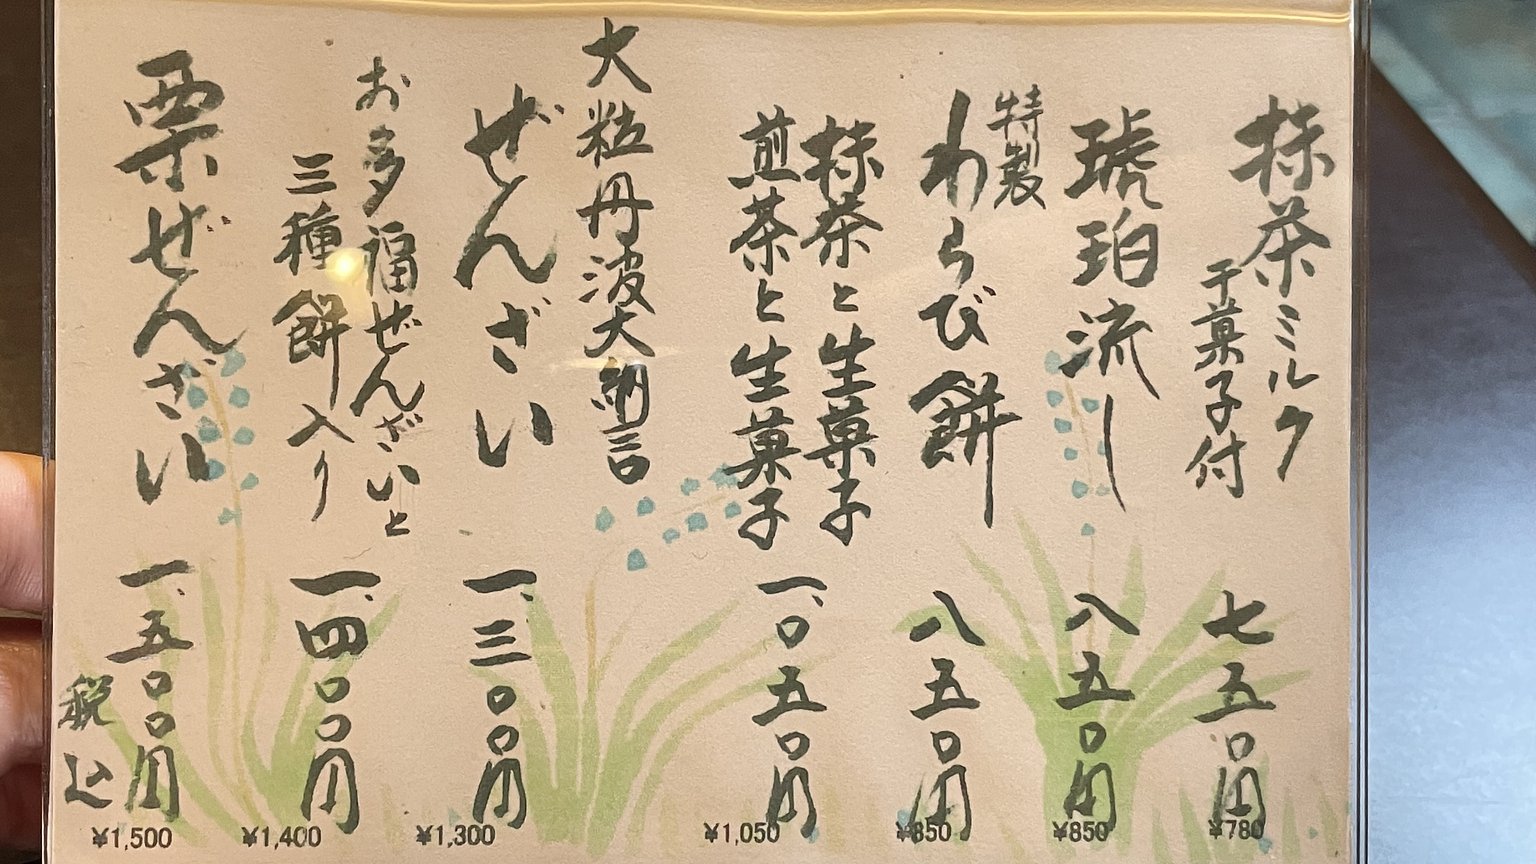 抹茶ミルク
干菓子付
七五〇円
¥780
琥珀流し
八五〇円
¥850
特製
わらび餅
八五〇円
¥850
抹茶と生菓子
煎茶と生菓子
一、〇五〇円
¥1,050
大粒丹波大納言
ぜんざい
一、三〇〇円
¥1,300
お多福ぜんざいと
三種餅入り
一、四〇〇円
¥1,400
栗ぜんざい
一、五〇〇円
¥1,500
税込